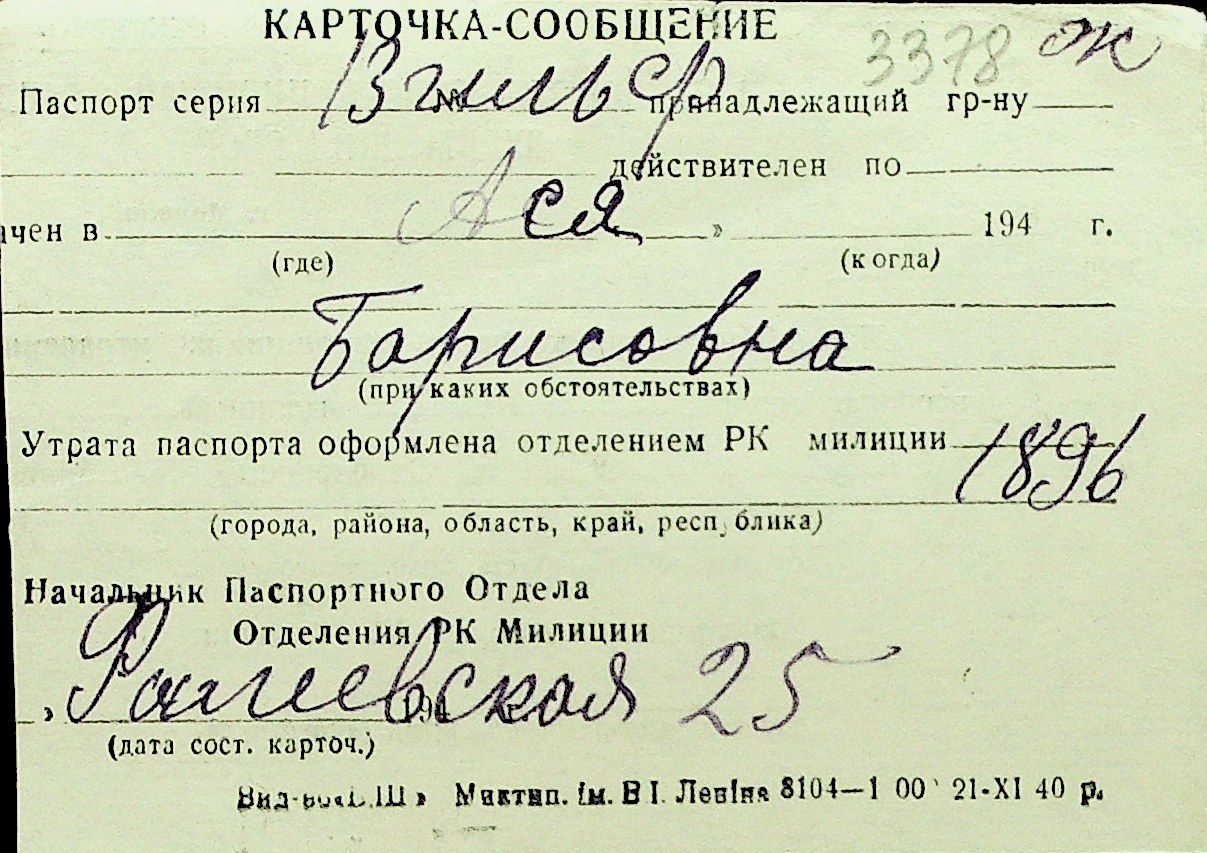 КАРТОЧКА-СООБЩЕНИЕ
3378 ж
Паспорт серия № принадлежащий гр-ну
Вильф
действителен по
Ася
ачен в » 194 г.
(где) (когда)
Борисовна
(при каких обстоятельствах)
Утрата паспорта оформлена отделением РК милиции
1896
(города, района, область, край, республика)
Начальник Паспортного Отдела
Отделения РК Милиции
25
» 194
(дата сост. карточ.)
8104—1 00 21-XI 40 р.